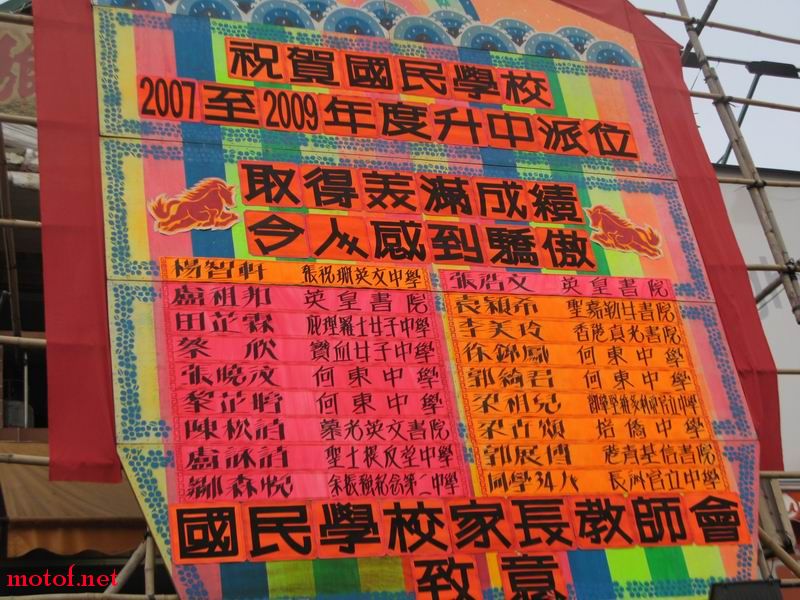 祝賀國民學校
2007至2009年度升中派位
取得美滿成績
令人感到驕傲
楊智軒 張祝珊英文中學
張浩文 英皇書院
盧祖 英皇書院
袁穎希 聖嘉勒女書院
田芷霖 庇理羅士女子中學
李美玲 香港真光書院
蔡欣 寶血女子中學
徐錦鳳 何東中學
張曉汶 何東中學
郭綺君 何東中學
黎芷晴 何東中學
梁祖兒
陳松 慕光英文書院
梁 頌 培僑中學
盧詠 聖士提反堂中學
郭展博 港青基信書院
鄒森悅 余振強紀念第二中學
同學34人 長洲官立中學
國民學校家長教師會
致意
motof.net